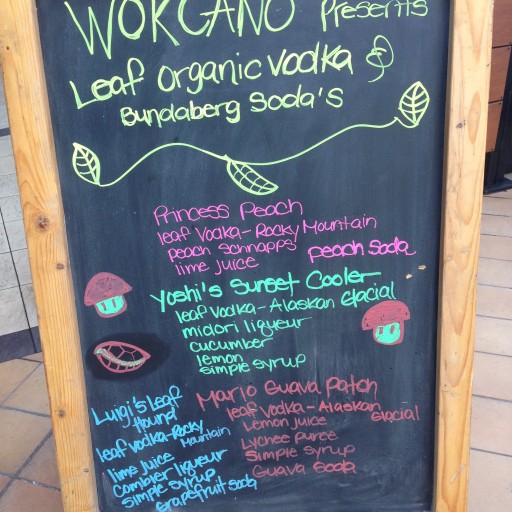 WOKCANO Presents
Leaf organic vodka &
Bundaberg Soda's
Princess Peach
leaf Vodka- Rocky Mountain
peach schnapps
peach soda
lime juice
Yoshi's Sunset Cooler
leaf vodka- Alaskan Glacial
midori liqueur
cucumber
lemon
simple syrup
Mario Guava Patch
leaf vodka- Alaskan
Glacial
Lemon juice
Lychee puree
simple syrup
Guava Soda
Luigi's Leaf
Hound
leaf vodka- Rocky
Mountain
lime juice
combier liqueur
simple syrup
grapefruit soda